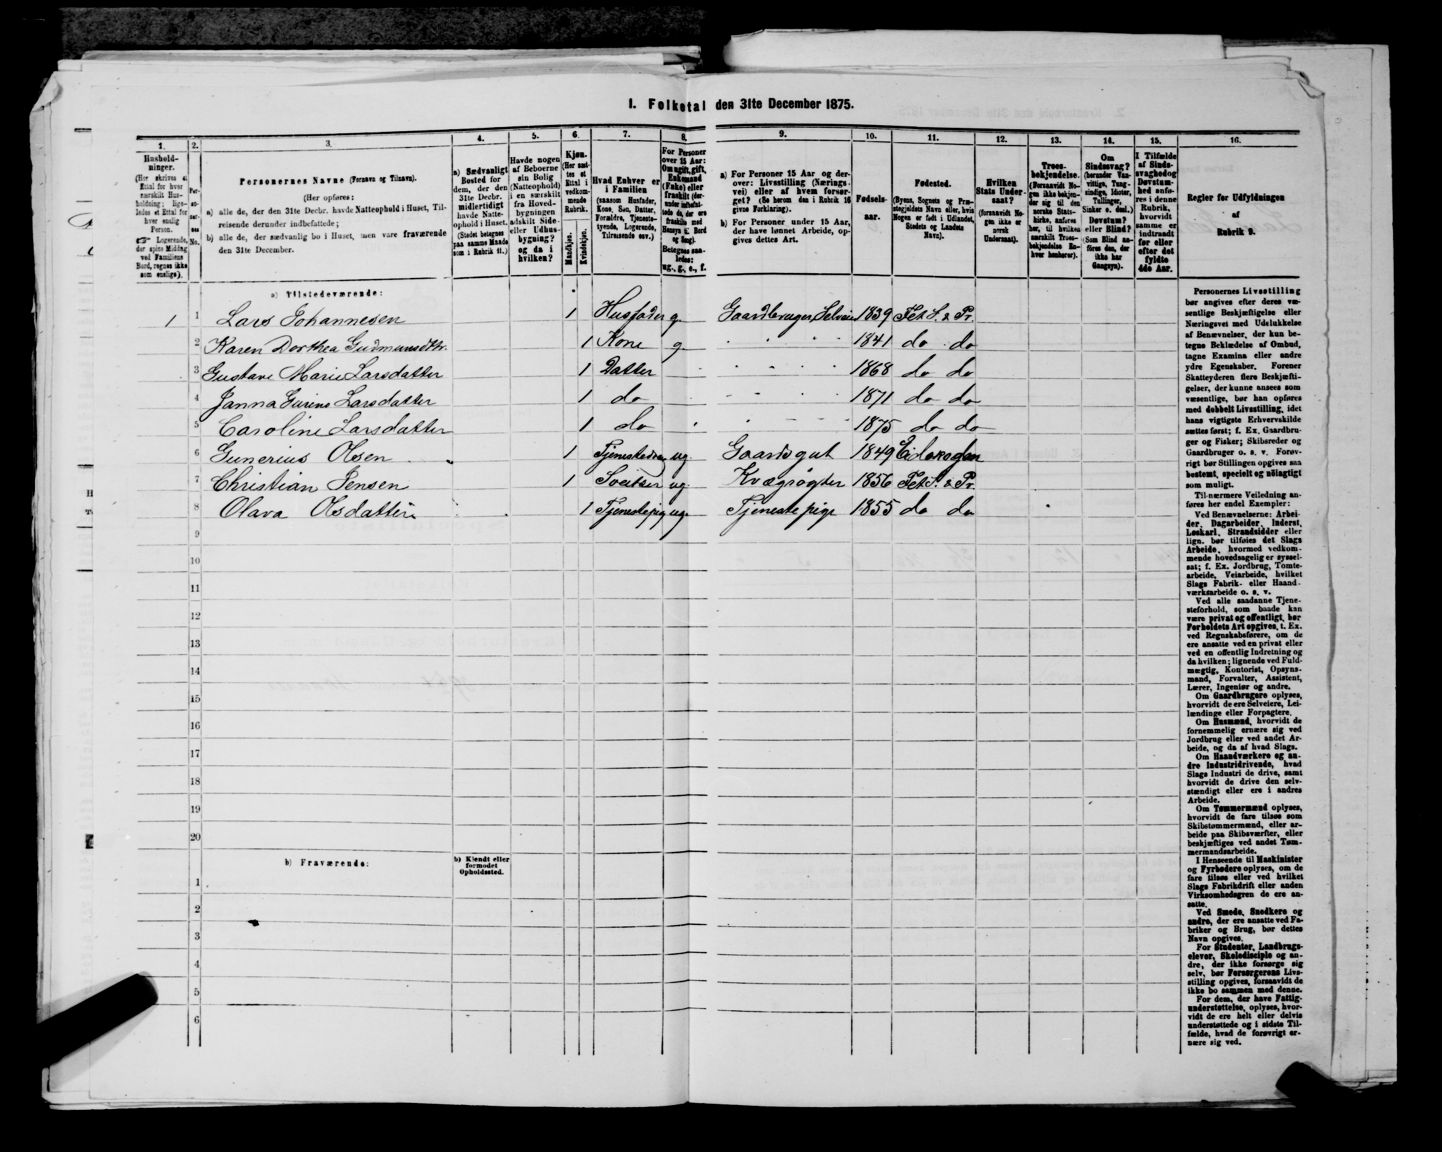 1. Folketal den 31te December 1875.
1. 2. 3. 4. 5. 6. 7. 8. 9. 10. 11. 12. 13. 14. 15. 16.
Hushold-
ninger.
(Her skrives et
Ettal for hver
særskilt Hus-
holdning; lige-
ledes et Ettal for
hver enslig
Person.
☞ Logerende,
der spise Middag
ved Familiens
Bord, regnes ikke
som enslige).
Per-
so-
ner-
nes
No.
Personernes Navne (Fornavn og Tilnavn).
(Her opføres:
a) alle de, der den 31te Decbr. havde Natteophold i Huset, Til-
reisende derunder indbefattede;
b) alle de, der sædvanlig bo i Huset, men vare fraværende
den 31te December.
a) Sædvanligt
Bosted for
dem, der den
31te Decbr.
midlertidigt
havde Natte-
ophold i Huset.
(Stedet betegnes
paa samme Maade
som i Rubrik 11.)
Havde nogen
af Beboerne
sin Bolig
(Natteophold)
i en særskilt
fra Hoved-
bygningen
adskilt Side-
eller Udhus-
bygning?
og da i
hvilken?
Kjøn.
(Her sæt-
tes et
Ettal i
vedkom-
mende
Rubrik.
Mandkjøn.
Kvindekjøn.
Hvad Enhver er
i Familien
(saasom Husfader,
Kone, Søn, Datter,
Forældre, Tjeneste-
tyende, Logerende,
Tilreisende osv.)
For Personer
over 15 Aar:
Om ugift, gift,
Enkemand
(Enke) eller
fraskilt (der-
under indbefat-
tede de, der ere
fraskilte med
Hensyn til Bord
og Seng).
Betegnes saa-
ledes:
ug., g., e., f.
a) For Personer 15 Aar og der-
over: Livsstilling (Nærings-
vei) eller af hvem forsør-
get? (Se herom den i Rubrik 16
givne Forklaring).
b) For Personer under 15 Aar,
der have lønnet Arbeide, op-
gives dettes Art.
Fødsels-
aar.
Fødested.
(Byens, Sognets og Præ-
stegjældets Navn eller, hvis
Nogen er født i Udlandet,
Stedets og Landets
Navn).
Hvilken
Stats Under-
saat?
(forsaavidt No-
gen ikke er
norsk
Undersaat).
Troes-
bekjendelse.
(Forsaavidt No-
gen ikke bekjen-
der sig til den
norske Stats-
kirke, anføres
her, til hvilken
særskilt Troes-
bekjendelse En-
hver henhører).
Om
Sindssvag?
(herunder Van-
vittige, Tung-
sindige, Idioter,
Tullinger,
Sinker o. desl.)
Døvstum?
eller Blind?
(Som Blind an-
føres den, der
ikke har
Gangsyn).
I Tilfælde
af Sinds-
svaghed og
Døvstum-
hed anfø-
res i denne
Rubrik,
hvorvidt
samme er
indtraadt
før eller
efter det
fyldte
4de Aar.
Regler for Udfyldningen
af
Rubrik 9.
a) Tilstedeværende:
1 1 Lars Johannesen 1 Husfader g. Gaardbruger, Selveier 1839 Fet S. & Pr.
2 Karen Dorthea Gudmunsdttr. 1 Kone g. 1841 do do
3 Gustave Marie Larsdatter 1 Datter 1868 do do
4 Janna Larsdatter 1 do 1871 do do
5 Caroline Larsdatter 1 do 1875 do do
6 Gunerius Olsen 1 Tjenestedreng ug. Gaardsgut 1849
7 Christian Jensen 1 Sveitser ug. Kvægrøgter 1856 Fet S. & Pr.
8 Olava Olsdatter 1 Tjenestepige ug. Tjenestepige 1855 do do
9
10
11
12
13
14
15
16
17
18
19
20
b) Fraværende:
b) Kjendt eller
formodet
Opholdssted.
1
2
3
4
5
6
Personernes Livsstilling
bør angives efter deres væ-
sentlige Beskjæftigelse eller
Næringsvei med Udelukkelse
af Benævnelser, der kun be-
tegne Beklædelse af Ombud,
tagne Examina eller andre
ydre Egenskaber. Forener
Skatteyderen flere Beskjæfti-
gelser, der kunne ansees som
væsentlige, bør han opføres
med dobbelt Livsstilling, idet
hans vigtigste Erhvervskilde
sættes først; f. Ex. Gaardbru-
ger og Fisker; Skibsreder og
Gaardbruger o. s. v. Forøv-
rigt bør Stillingen opgives saa
bestemt, specielt og nøiagtigt
som muligt.
Til nærmere Veiledning an-
føres her endel Exempler:
Ved Benævnelserne: Arbei-
der, Dagarbeider, Inderst,
Løskarl, Strandsidder eller
lign. bør tilføies det Slags
Arbeide, hvormed vedkom-
mende hovedsagelig er syssel-
sat; f. Ex. Jordbrug, Tomte-
arbeide, Veiarbeide, hvilket
Slags Fabrik- eller Haand-
værksarbeide o. s. v.
Ved alle saadanne Tjene-
steforhold, som baade kan
være privat og offentligt, bør
Forholdets Art opgives, t. Ex.
ved Regnskabsførere, om de
ere ansatte ved en privat eller
ved en offentlig Indretning og
da hvilken; lignende ved Fuld-
mægtig, Kontorist, Opsyns-
mand, Forvalter, Assistent,
Lærer, Ingeniør og andre.
Om Gaardbrugere oplyses,
hvorvidt de ere Selveiere, Lei-
lændinge eller Forpagtere.
Om Husmænd, hvorvidt de
fornemmelig ernære sig ved
Jordbrug eller ved andet Ar-
beide, og da af hvad Slags.
Om Haandværkere og an-
dre Industridrivende, hvad
Slags Industri de drive, samt
hvorvidt de drive den selv-
stændigt eller ere i andres
Arbeide.
Om Tømmermænd oplyses,
hvorvidt de fare tilsøs som
Skibstømmermænd, eller ar-
beide paa Skibsværfter, eller
beskjæftiges ved andet Tøm-
mermandsarbeide.
I Henseende til Maskinister
og Fyrbødere oplyses, om de
fare tilsøs eller ved hvilket
Slags Fabrikdrift eller anden
Virksomhedsgren de ere an-
satte.
Ved Smede, Snedkere og
andre, der ere ansatte ved Fa-
briker og Brug, bør dettes
Navn opgives.
For Studenter, Landbrugs-
elever, Skoledisciple og an-
dre, der ikke forsørge sig
selv, bør Forsørgerens Livs-
stilling opgives, forsaavidt de
ikke bo sammen med denne.
For dem, der have Fattig-
understøttelse, oplyses, hvor-
vidt de ere helt eller delvis
understøttede og i sidste Til-
fælde, hvad de forøvrigt er-
nære sig ved.